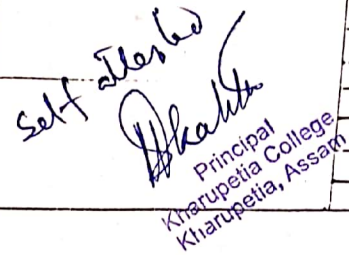 Self attested
Principal
Kharupetia College
Kharupetia, Assam